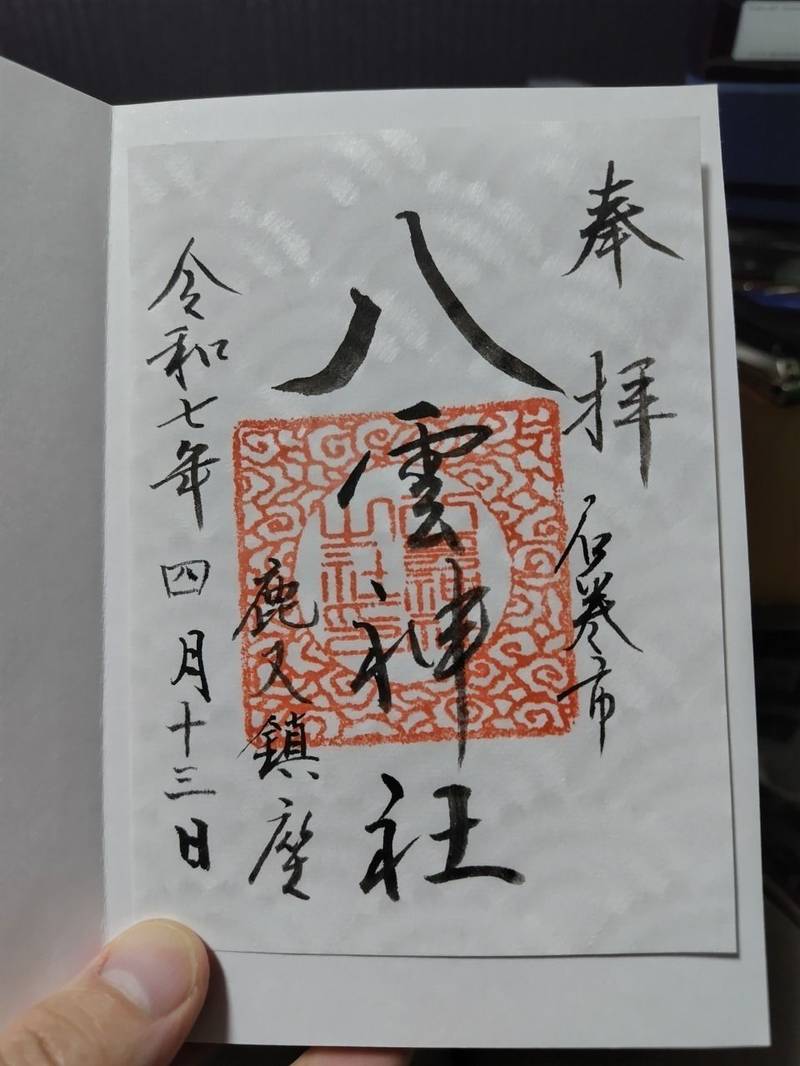 奉拝
石巻市
八雲神社
鹿又鎮座
令和七年四月十三日